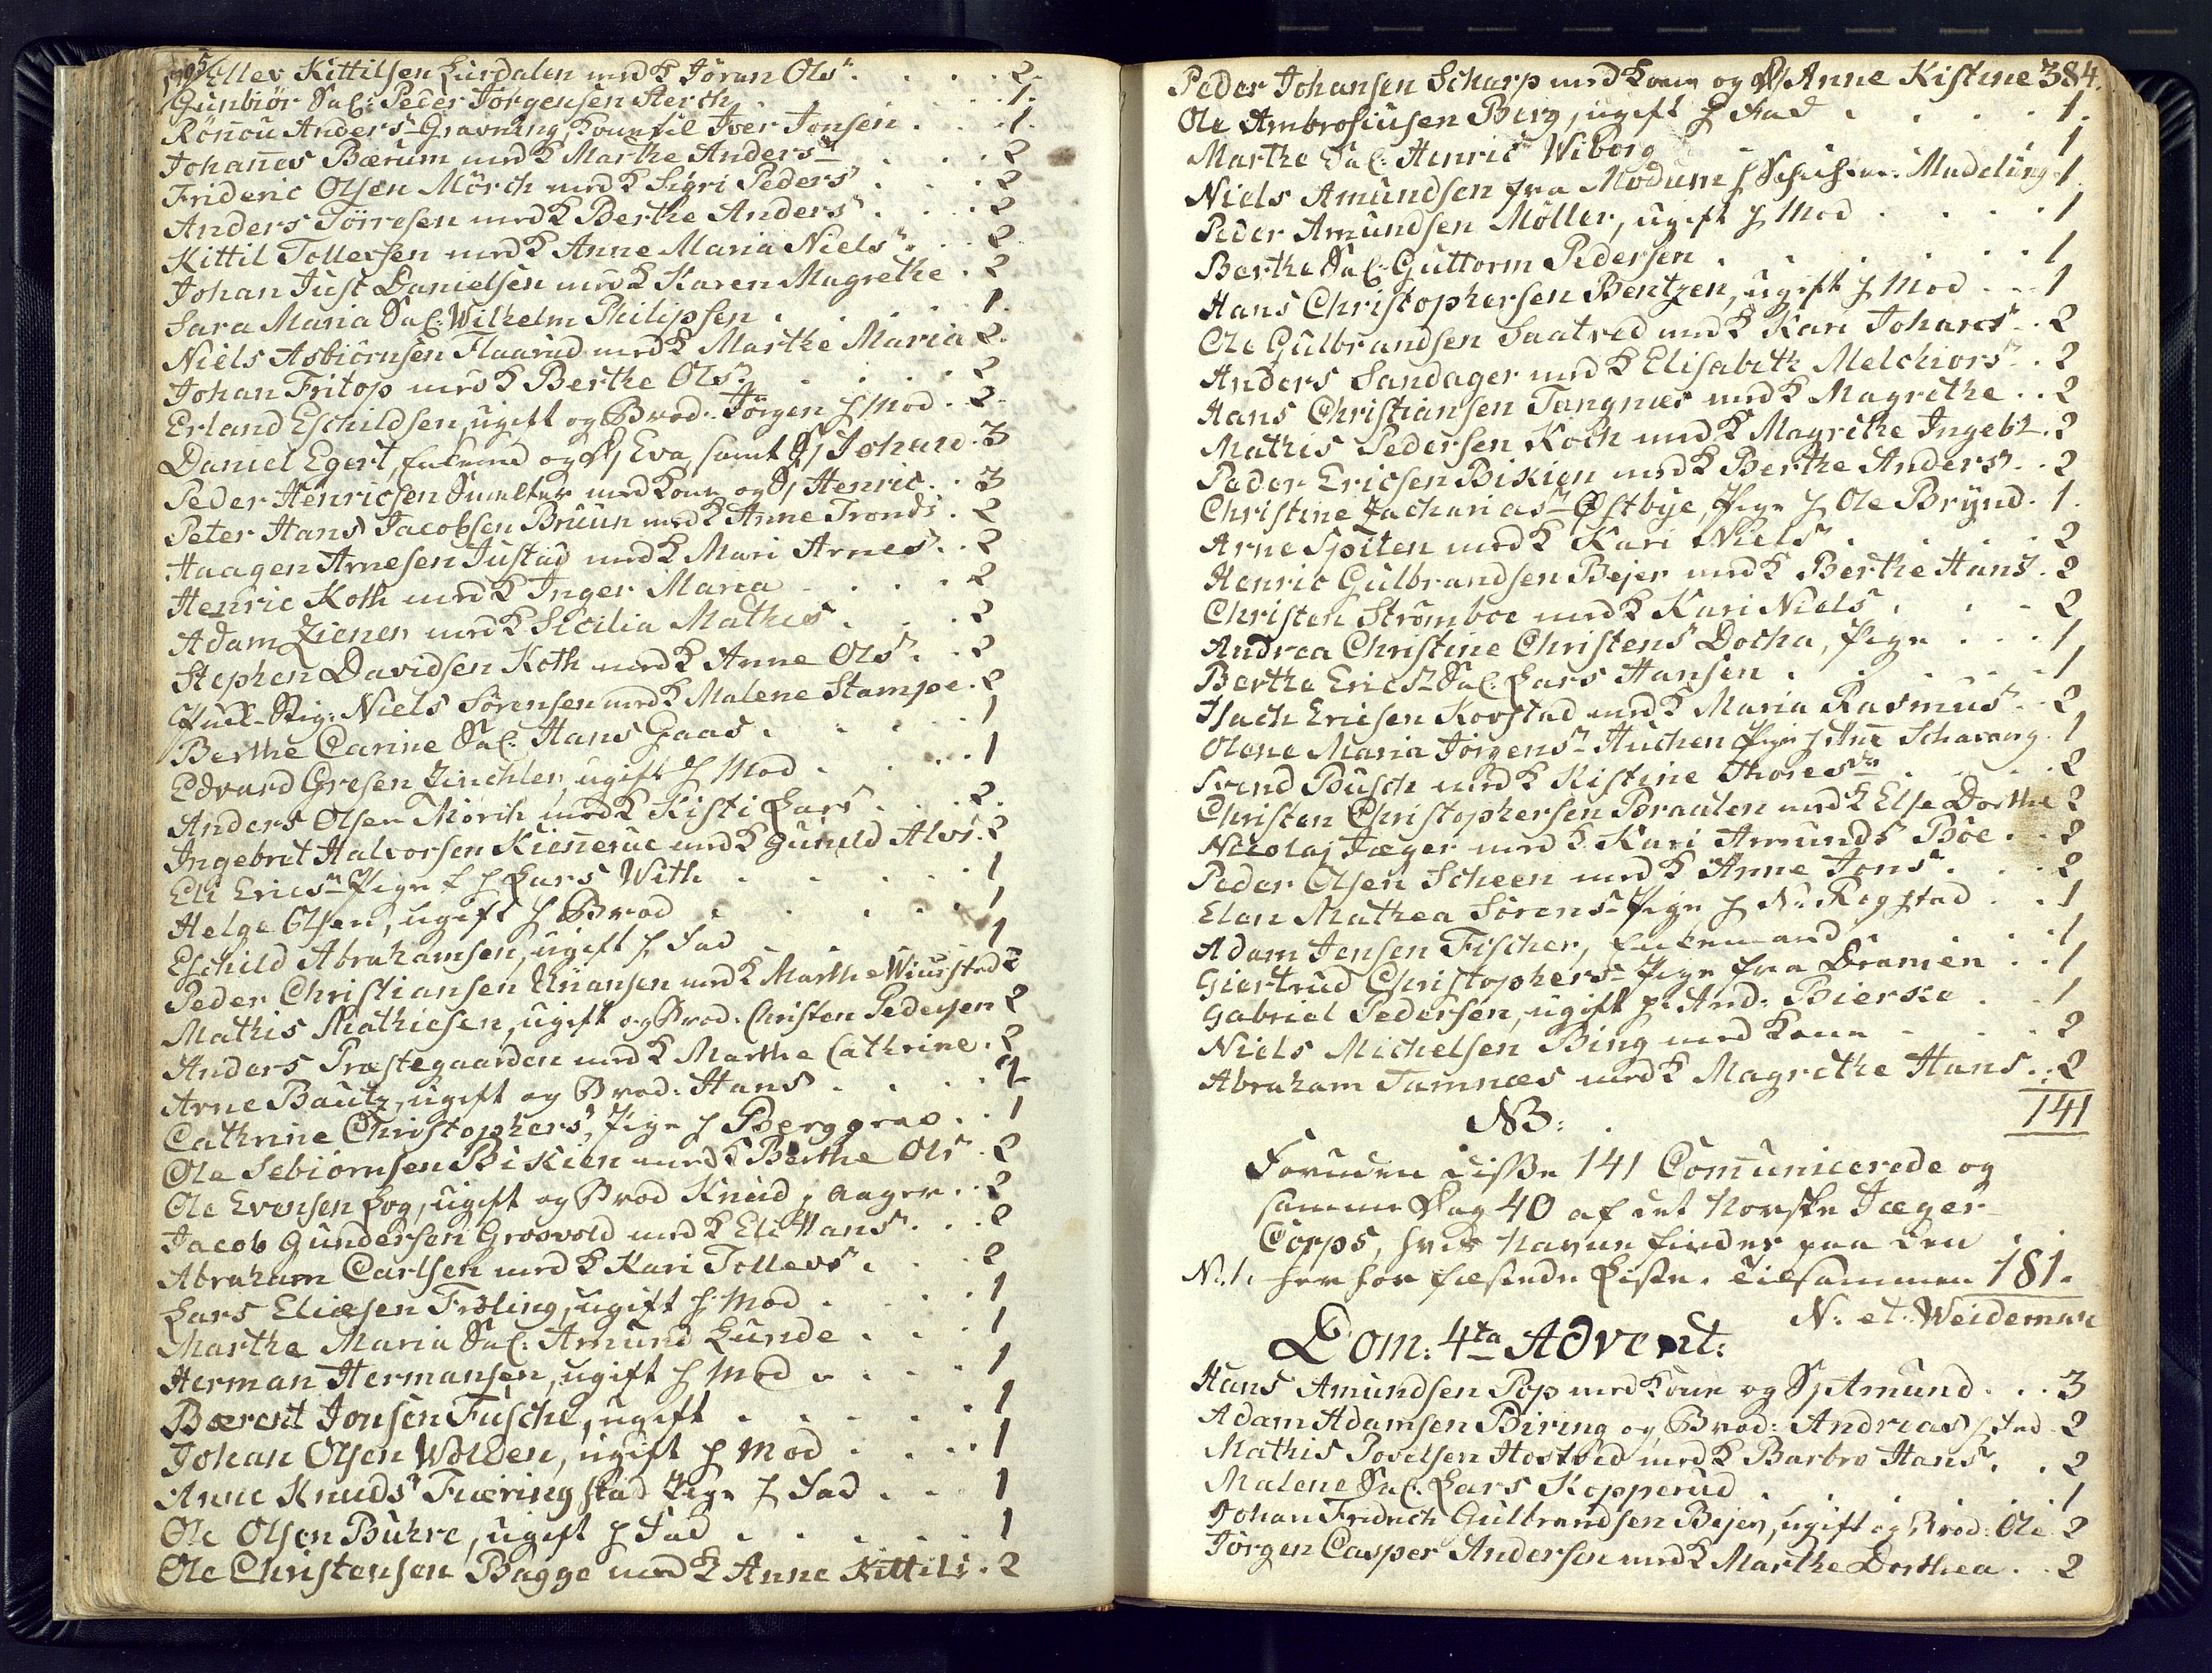 1795
Ellev Kittilsen Lurdalen med K Jöran Ols. . . . . 2.
Gunbiör Sal: Peder Jorgensen Sterch . . . . 1.
Rönnou Anders Gravning, Kone til Iver Jonsen . . . 1.
Johannes Bærum med K Marthe Anders . . . . 2
Frideric Olsen Mörch med K Sigri Peders . . . 2
Anders Törresen med K Berthe Anders . . . . 2
Kittil Tollefsen med K Anne Maria Niels . . . 2
Johan Just Danielsen med K Karen Magrethe . 2
Sara Maria Sal: Wilhelm Philipsen . . . . 1.
Niels Asbiörnsen Flaarud med K Marthe Maria 2.
Johan Fritop med K Berthe Ols . . . . 2
Erland Eschildsen, ugift og Brod: Jörgen h Mod . 2.
Daniel Egert, Enkemd og D/ Eva, samt S/ Johan . 3
Peder Henricsen Smelter med Kone og S/ Henric . . 3
Peter Hans Jacobsen Bruun med K Anne Tronds . 2
Haagen Arnesen Justad med K Mari Arnes . . 2
Henric Koth med K Inger Maria . . . . 2
Adam Ziener med K Sicilia Mathes . . . 2
Stephen Davidsen Koth med K Anne Ols . . 2
Niels Sörensen med K Malene Stampe . 2
Berthe Carine Sal: Hans Gaas . . . . 1
Edvard Gresen Zinchler, ugift h Mod . . . 1
Anders Olsen Mörch med K Kisti Lars . . . 2.
Ingebret Halvorsen Kiennerue med K Gunild Alvs . 2
Eli Erics Pige h Lars With . . . . 1
Helge Olsen, ugift h Brod . . . . 1
Eschild Abrahamsen, ugift h Fad . . . . 1
Peder Christiansen Unansen med K Marthe Wiursted 2
Mathis Mathiesen, ugift og Brod: Christen Pedersen 2
Anders Præstegaarden med K Marthe Cathrine . 2
Arne Bautz, ugift og Brod: Hans . . . . 2
Cathrine Christophers, Pige h Berggrae . . 1
Ole Sebiörnsen Bikien med K Berthe Ols . 2
Ole Evensen Log, ugift og Brod Knud, Aager . . 2
Jacob Gundersen Grosvold med K Eli Hans . . . 2
Abraham Carlsen med K Kari Tollevs . . . 2
Lars Eliæsen Fröling, ugift h Mod . . . . 1
Marthe Maria Sal: Amund Lunde . . . 1
Herman Hermansen, ugift h Mod . . . . 1
Bærent Jonsen Fusche, ugift . . . . . 1
Johan Olsen Wolden, ugift h Mod . . . . 1
Anne Knuds Fuæringstad Pige h Fad . . . 1
Ole Olsen Buhre, ugift h Fad . . . . . 1
Ole Christensen Bagge med K Anne Kittils . 2
Peder Johansen Scharp med Kone og D/ Anne Kistine 384.
Ole Ambrosiusen Berg, ugift h Fad . . . . 1.
Marthe Sal: Henric Wiborg . . . . 1
Niels Amundsen fra Modum h Madelung . 1
Peder Amundsen Möller, ugift h Mod . . . . 1
Berthe Sal: Guttorm Pedersen . . . . . 1
Hans Christophersen Bentzen, ugift h Mod . . . 1
Ole Gulbrandsen Saatved med K Kari Johans . . 2
Anders Sandager med K Elisabeth Melchiors . . 2
Hans Christiansen Tangnæs med K Magrethe . . 2
Mathis Pedersen Koch med K Magrethe Ingebr . 2
Peder Ericsen Bikien med K Berthe Anders . . 2
Christine Zacharias Östbye, Pige h Ole Brynd . 1.
Arne Spiten med K Kari Niels . . . . 2
Henric Gulbrandsen Bejer med K Berthe Hans . 2
Christen Strömboe med K Kari Niels . . . 2
Andrea Christine Christens Docha, Pige . . . 1
Berthe Erics Sal: Lars Hansen . . . . . 1
Isach Ericsen Korstad med K Maria Rasmus . . 2
Olene Maria Jörgens Huchen Pige h Ane Schavang . 1
Svend Busch med K Kistine Thores . . . . 2
Christen Christophersen Braaten med K Else Dorthe 2
Nicolaj Jæger med K Kari Amunds Böe . . 2
Peder Olsen Scheen med K Anne Jons . . . 2
Elen Mathea Sörens Pige h N: Rogstad . . 1
Adam Jensen Fischer, Enkemand . . . . 1
Giertrud Christophers Pige fra Dramen . . 1
Gabriel Pedersen, ugift h And: Bierke . . . 1
Niels Michelsen Bing med Kone . . . . 2
Abraham Tamnæs med K Magrethe Hans . . 2
NB: 141
Foruden disse 141 Communicerede og
samme Dag 40 af det Norske Jæger
Corps, hvis Navne findes paa den
N. 1. her for hæftede Liste. Tilsammen 181.
N: et. Weideman
Dom: 4ta Advent:
Hans Amundsen Pop med Kone og S/ Amund . . . 3
Adam Adamsen Biring og Brod: Andreas h Fad . 2
Mathis Povelsen Hostved med K Barbro Hans . . 2
Malene Sal: Lars Kopperud . . . . . 1
Johan Fridrich Gulbrandsen Bejer, ugift og Brod: Ole 2
Jörgen Casper Andersen med K Marthe Dorthea . . 2